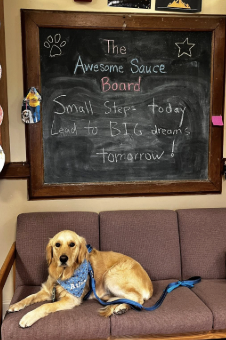 The
Awesome Sauce
Board
Small Steps today
Lead to BIG dreams
tomorrow!